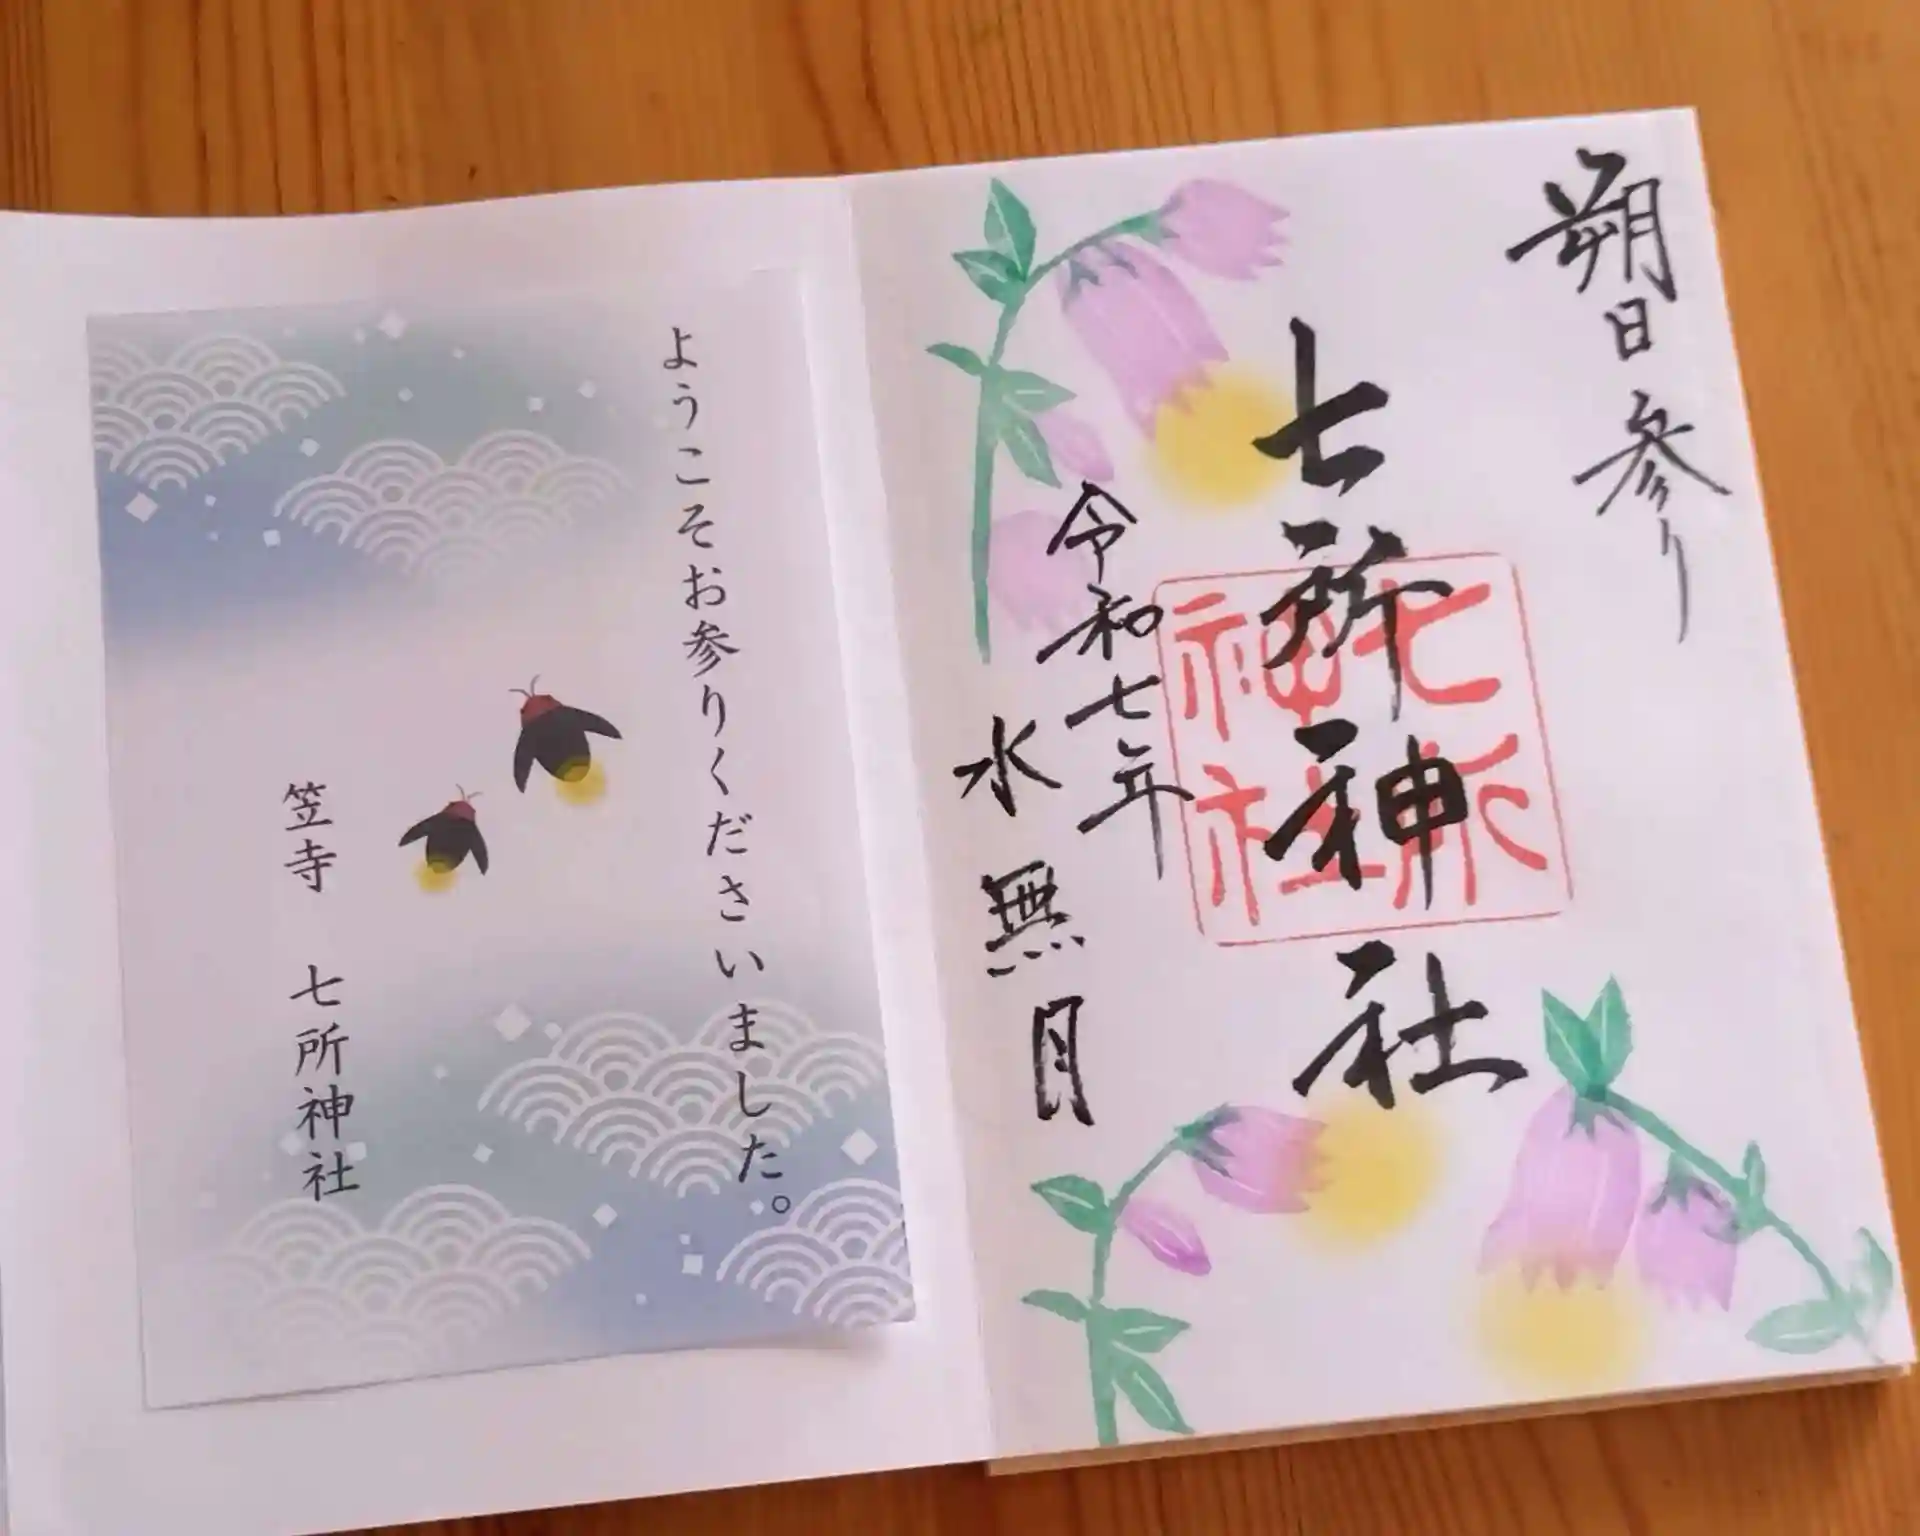 朔日参り
七所神社
七所神社
令和七年
水無月
ようこそお参りくださいました。
笠寺　七所神社